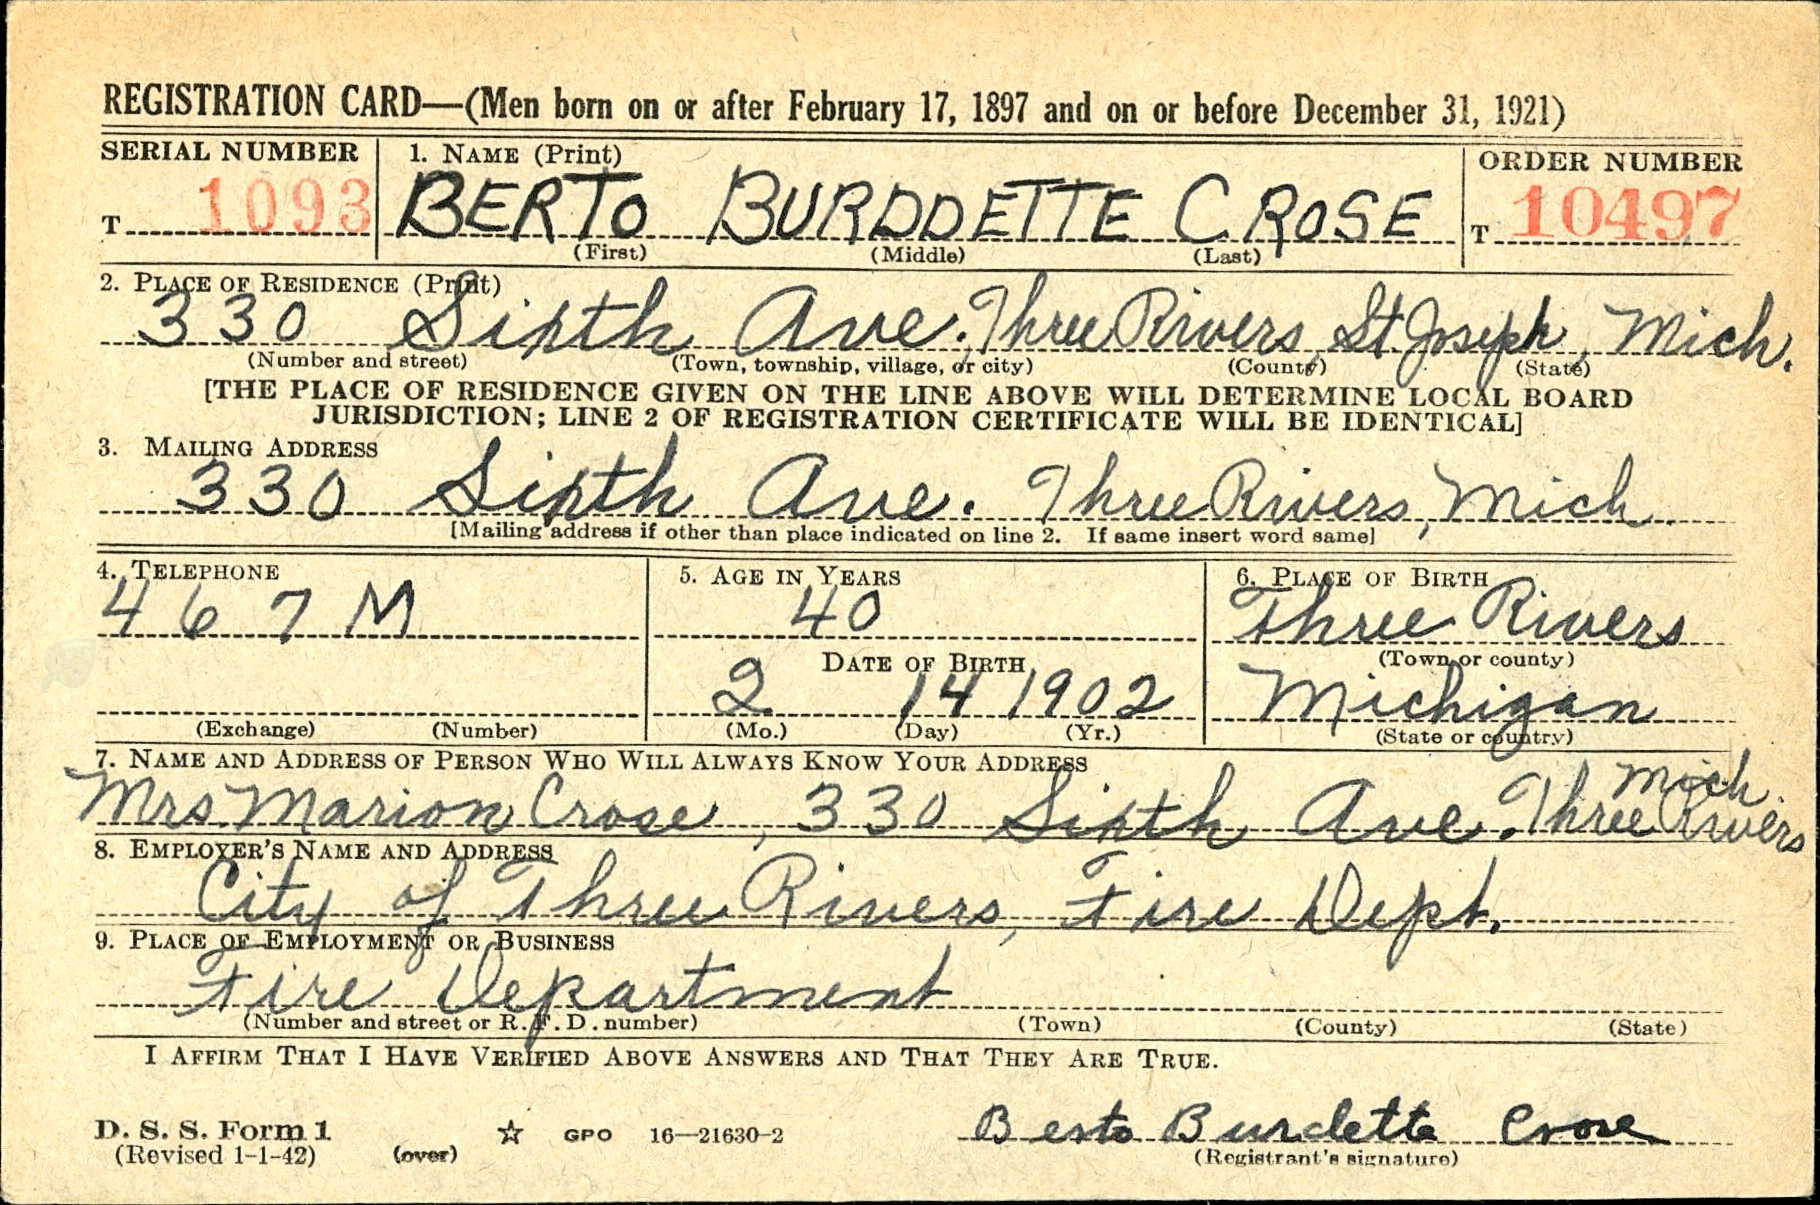 REGISTRATION CARD—(Men born on or after February 17, 1897 and on or before December 31, 1921)
SERIAL NUMBER 1. NAME (Print) ORDER NUMBER
T 1093 BERTO BURDDETTE CROSE T 10497
(First) (Middle) (Last)
2. PLACE OF RESIDENCE (Print)
330 Sixth Ave. Three Rivers, St. Joseph, Mich.
(Number and street) (Town, township, village, or city) (County) (State)
[THE PLACE OF RESIDENCE GIVEN ON THE LINE ABOVE WILL DETERMINE LOCAL BOARD
JURISDICTION; LINE 2 OF REGISTRATION CERTIFICATE WILL BE IDENTICAL]
3. MAILING ADDRESS
330 Sixth Ave. Three Rivers, Mich.
[Mailing address if other than place indicated on line 2. If same insert word same]
4. TELEPHONE 5. AGE IN YEARS 6. PLACE OF BIRTH
467M 40 Three Rivers
DATE OF BIRTH (Town or county)
2 14 1902 Michigan
(Exchange) (Number) (Mo.) (Day) (Yr.) (State or country)
7. NAME AND ADDRESS OF PERSON WHO WILL ALWAYS KNOW YOUR ADDRESS
Mrs. Marion Crose, 330 Sixth Ave. Three Rivers Mich.
8. EMPLOYER'S NAME AND ADDRESS
City of Three Rivers, Fire Dept.
9. PLACE OF EMPLOYMENT OR BUSINESS
Fire Department
(Number and street or R. F. D. number) (Town) (County) (State)
I AFFIRM THAT I HAVE VERIFIED ABOVE ANSWERS AND THAT THEY ARE TRUE.
D. S. S. Form 1 GPO 16—21630-2 Berto Burdette Crose
(Revised 1-1-42) (over) (Registrant's signature)